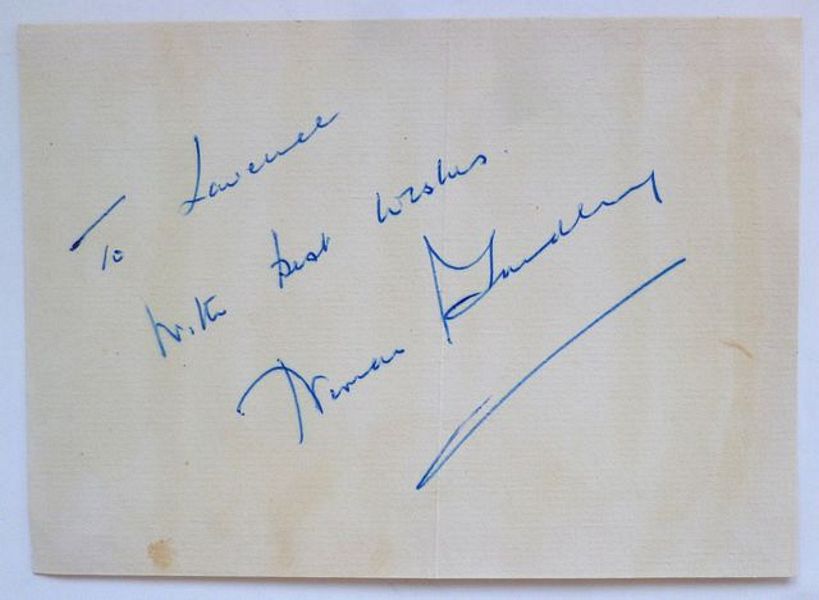 To Lawrence
With best wishes.
Norman